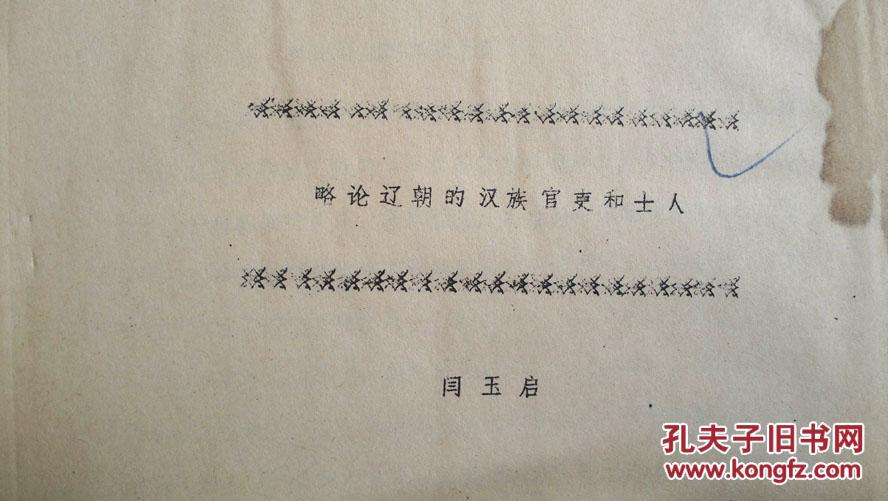 略论辽朝的汉族官吏和士人
闫玉启
孔夫子旧书网
www.kongfz.com